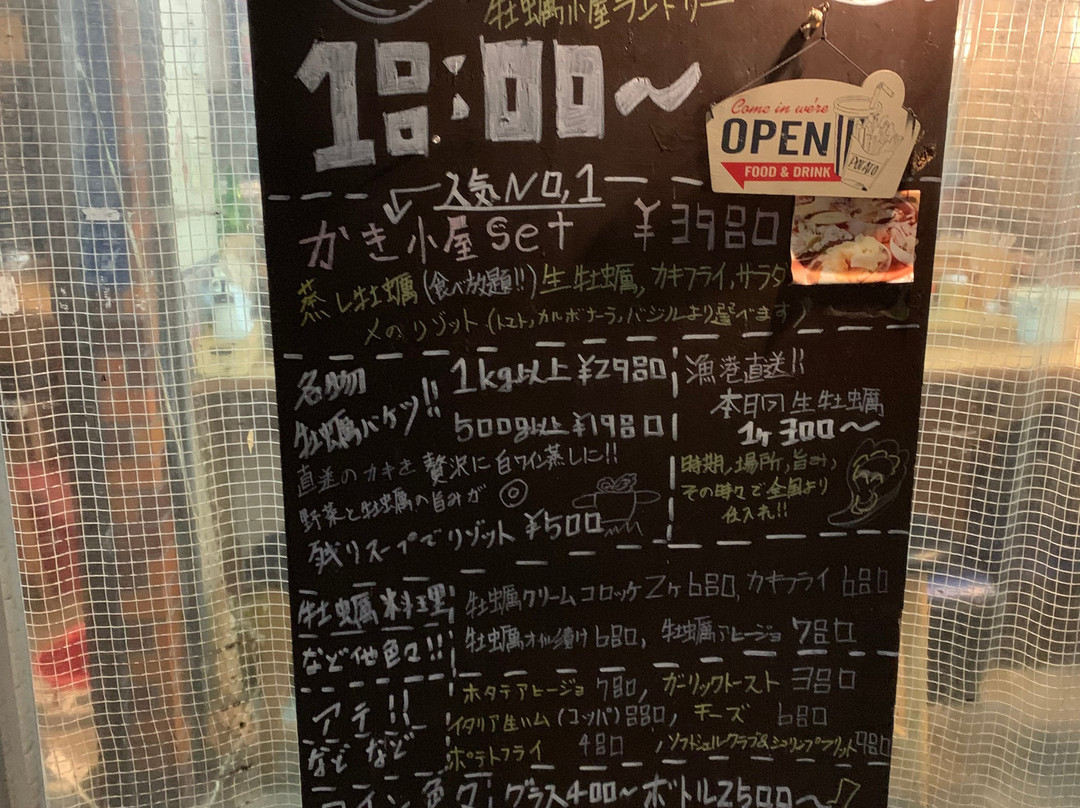 牡蠣小屋ランドリー
18:00~
Come in we're
OPEN
FOOD & DRINK
POTATO
人気NO,1
かき小屋set ¥3980
蒸し牡蠣(食べ放題!!)生牡蠣,カキフライ,サラダ
〆のリゾット(トマト,カルボナーラ,バジルより選べます)
名物
牡蠣バケツ!!
1kg以上¥2980
500g以上¥1980
直送のカキを贅沢に白ワイン蒸しに!!
野菜と牡蠣の旨みが◎
残りスープでリゾット¥500
漁港直送!!
本日の生牡蠣
1ヶ300~
時期,場所,旨み,
その時々で全国より
仕入れ!!
牡蠣料理
など他色々!!
牡蠣クリームコロッケ2ヶ680,カキフライ680
牡蠣オイル漬け680,牡蠣アヒージョ780
アテ!!
などなど
ホタテアヒージョ780,ガーリックトースト380
イタリア生ハム(コッパ)880,チーズ680
ポテトフライ480,ソフトシェルクラブ&シュリンプフリット980
ワイン色々 グラス400~ボトル2500~